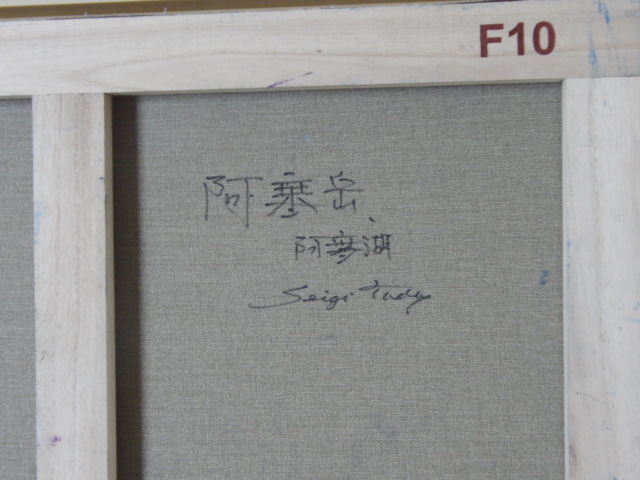 F10
阿寒岳、
阿寒湖
Seigi